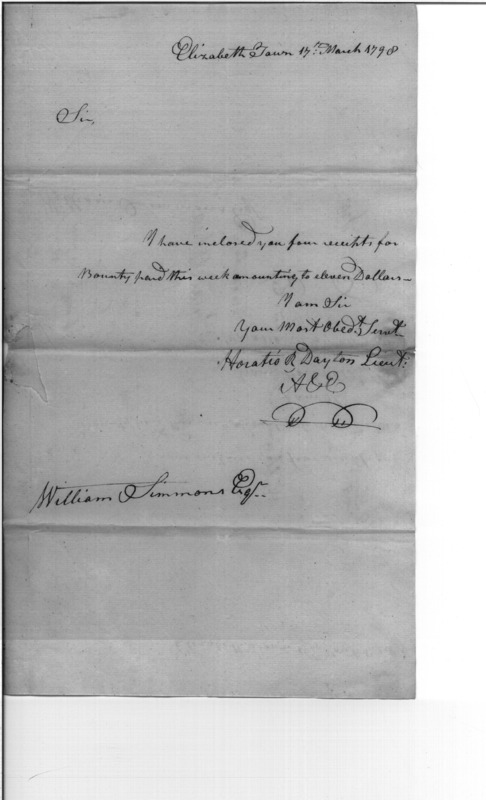 Elizabeth Town 17th. March 1798
Sir,
I have inclosed you four receipts for
Bounty paid this week amounting to eleven Dollars—
I am Sir
Your Most Obedt. Servt.
Horatio R Dayton Lieut:
A&E
William Simmons Esqr.